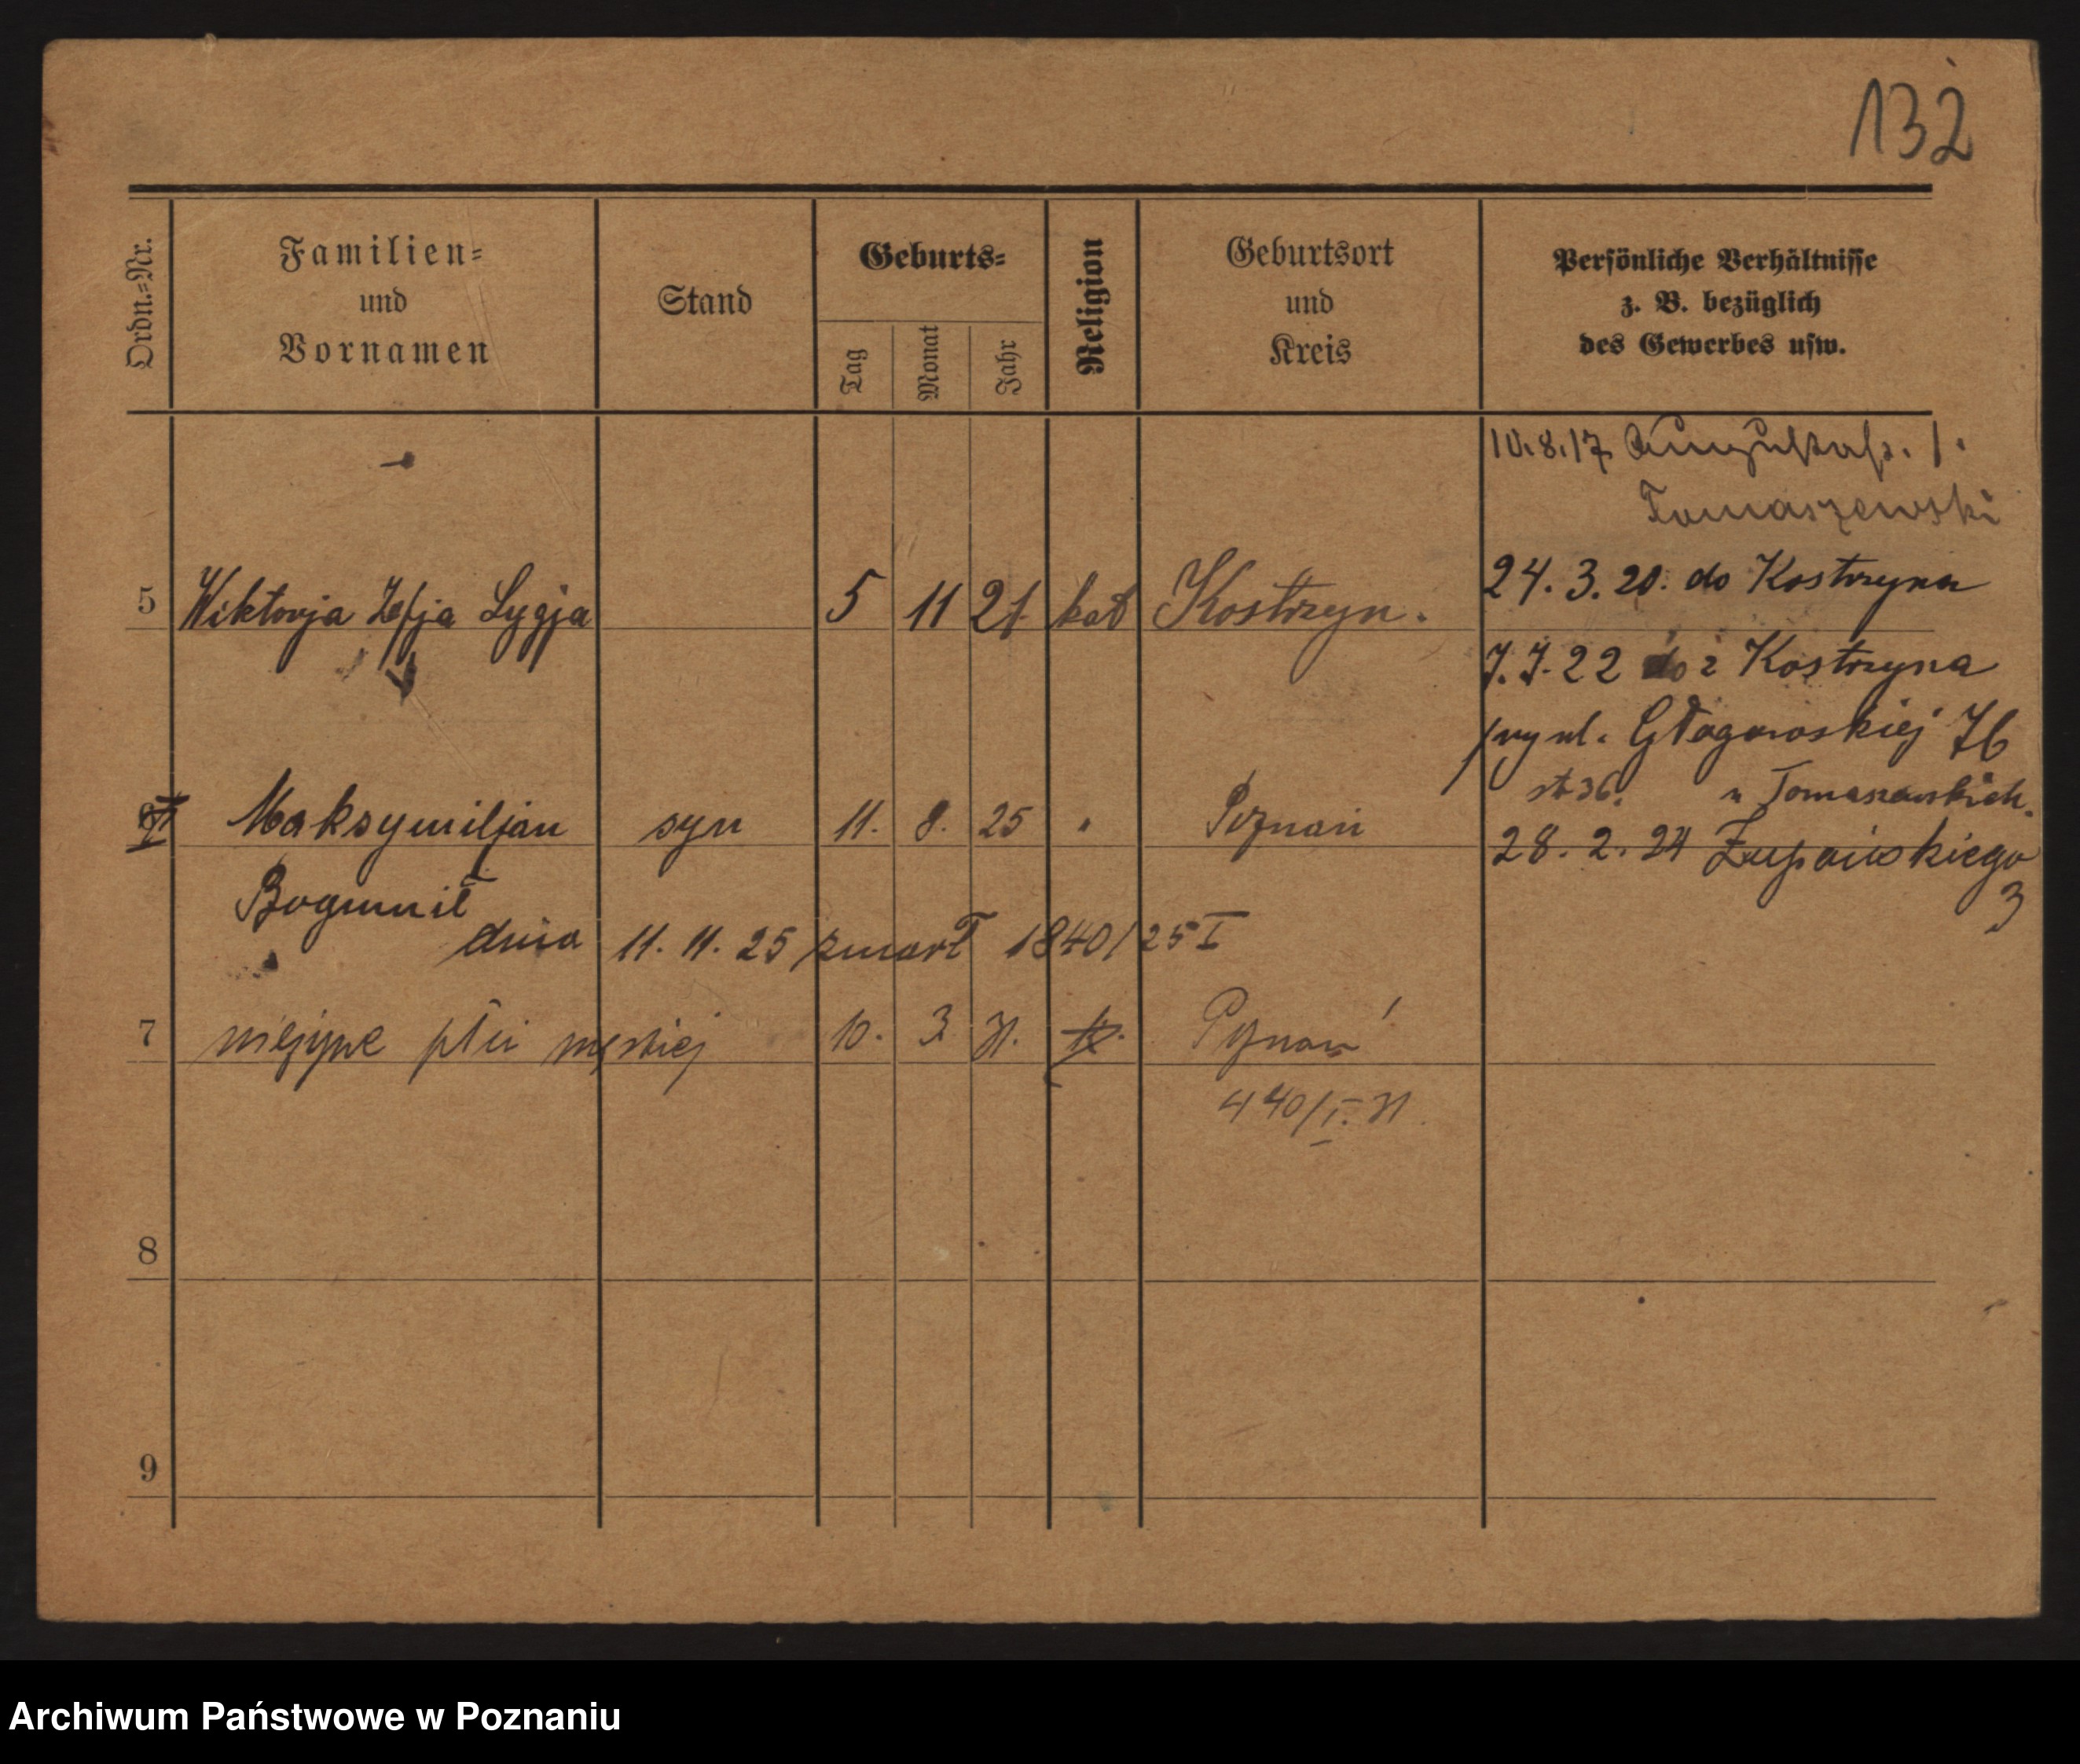 132
Ordn.=Nr.
Familien=
und
Vornamen
Stand
Geburts=
Tag
Monat
Jahr
Religion
Geburtsort
und
Kreis
Persönliche Verhältnisse
z. B. bezüglich
des Gewerbes usw.
10.8.17 Augustastr. 1.
Tomaszewski
24. 3. 20. do Kostrzyna
5 Wiktorja Zofja Lygja 5 11 21 kat Kostrzyn.
7.7.22 z Kostrzyna
przy ul. Głogowskiej 76
u Tomaszewskich.
6 Maksymiljan syn 11. 8. 25 " Poznań
28. 2. 24 Żupańskiego
3
Bogumił
dnia 11. 11. 25 zmarł 1840/25 I
7 nieżywe płci męskiej 10. 3. 31. k. Poznań
440/I. 31.
8
9
Archiwum Państwowe w Poznaniu